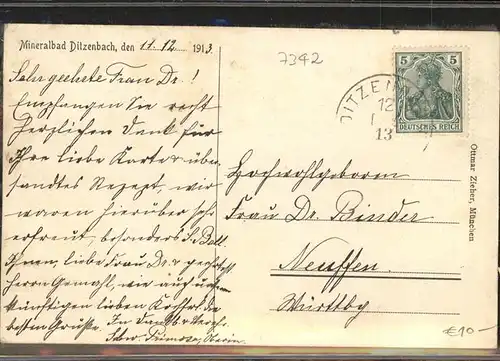 Mineralbad Ditzenbach, den 11. 12. 1913.
7342
Sehr geehrte Frau Dr.!
Empfangen Sie recht
herzlichen Dank für
Ihre liebe Karte u. über-
sandtes Rezept, wir
waren hierüber sehr
erfreut, besonders
Ihnen, liebe Frau Dr.
Herrn Gemahl, wie auch
künftigen lieben
besten Grüße. In Dankb. Verehr.
Schw. Oberin.
5 5
DEUTSCHES REICH
DITZEN
12
13
Hochwohlgeboren
Frau Dr. Binder
Neuffen
Württbg
Ottmar Zieher, München
€10-